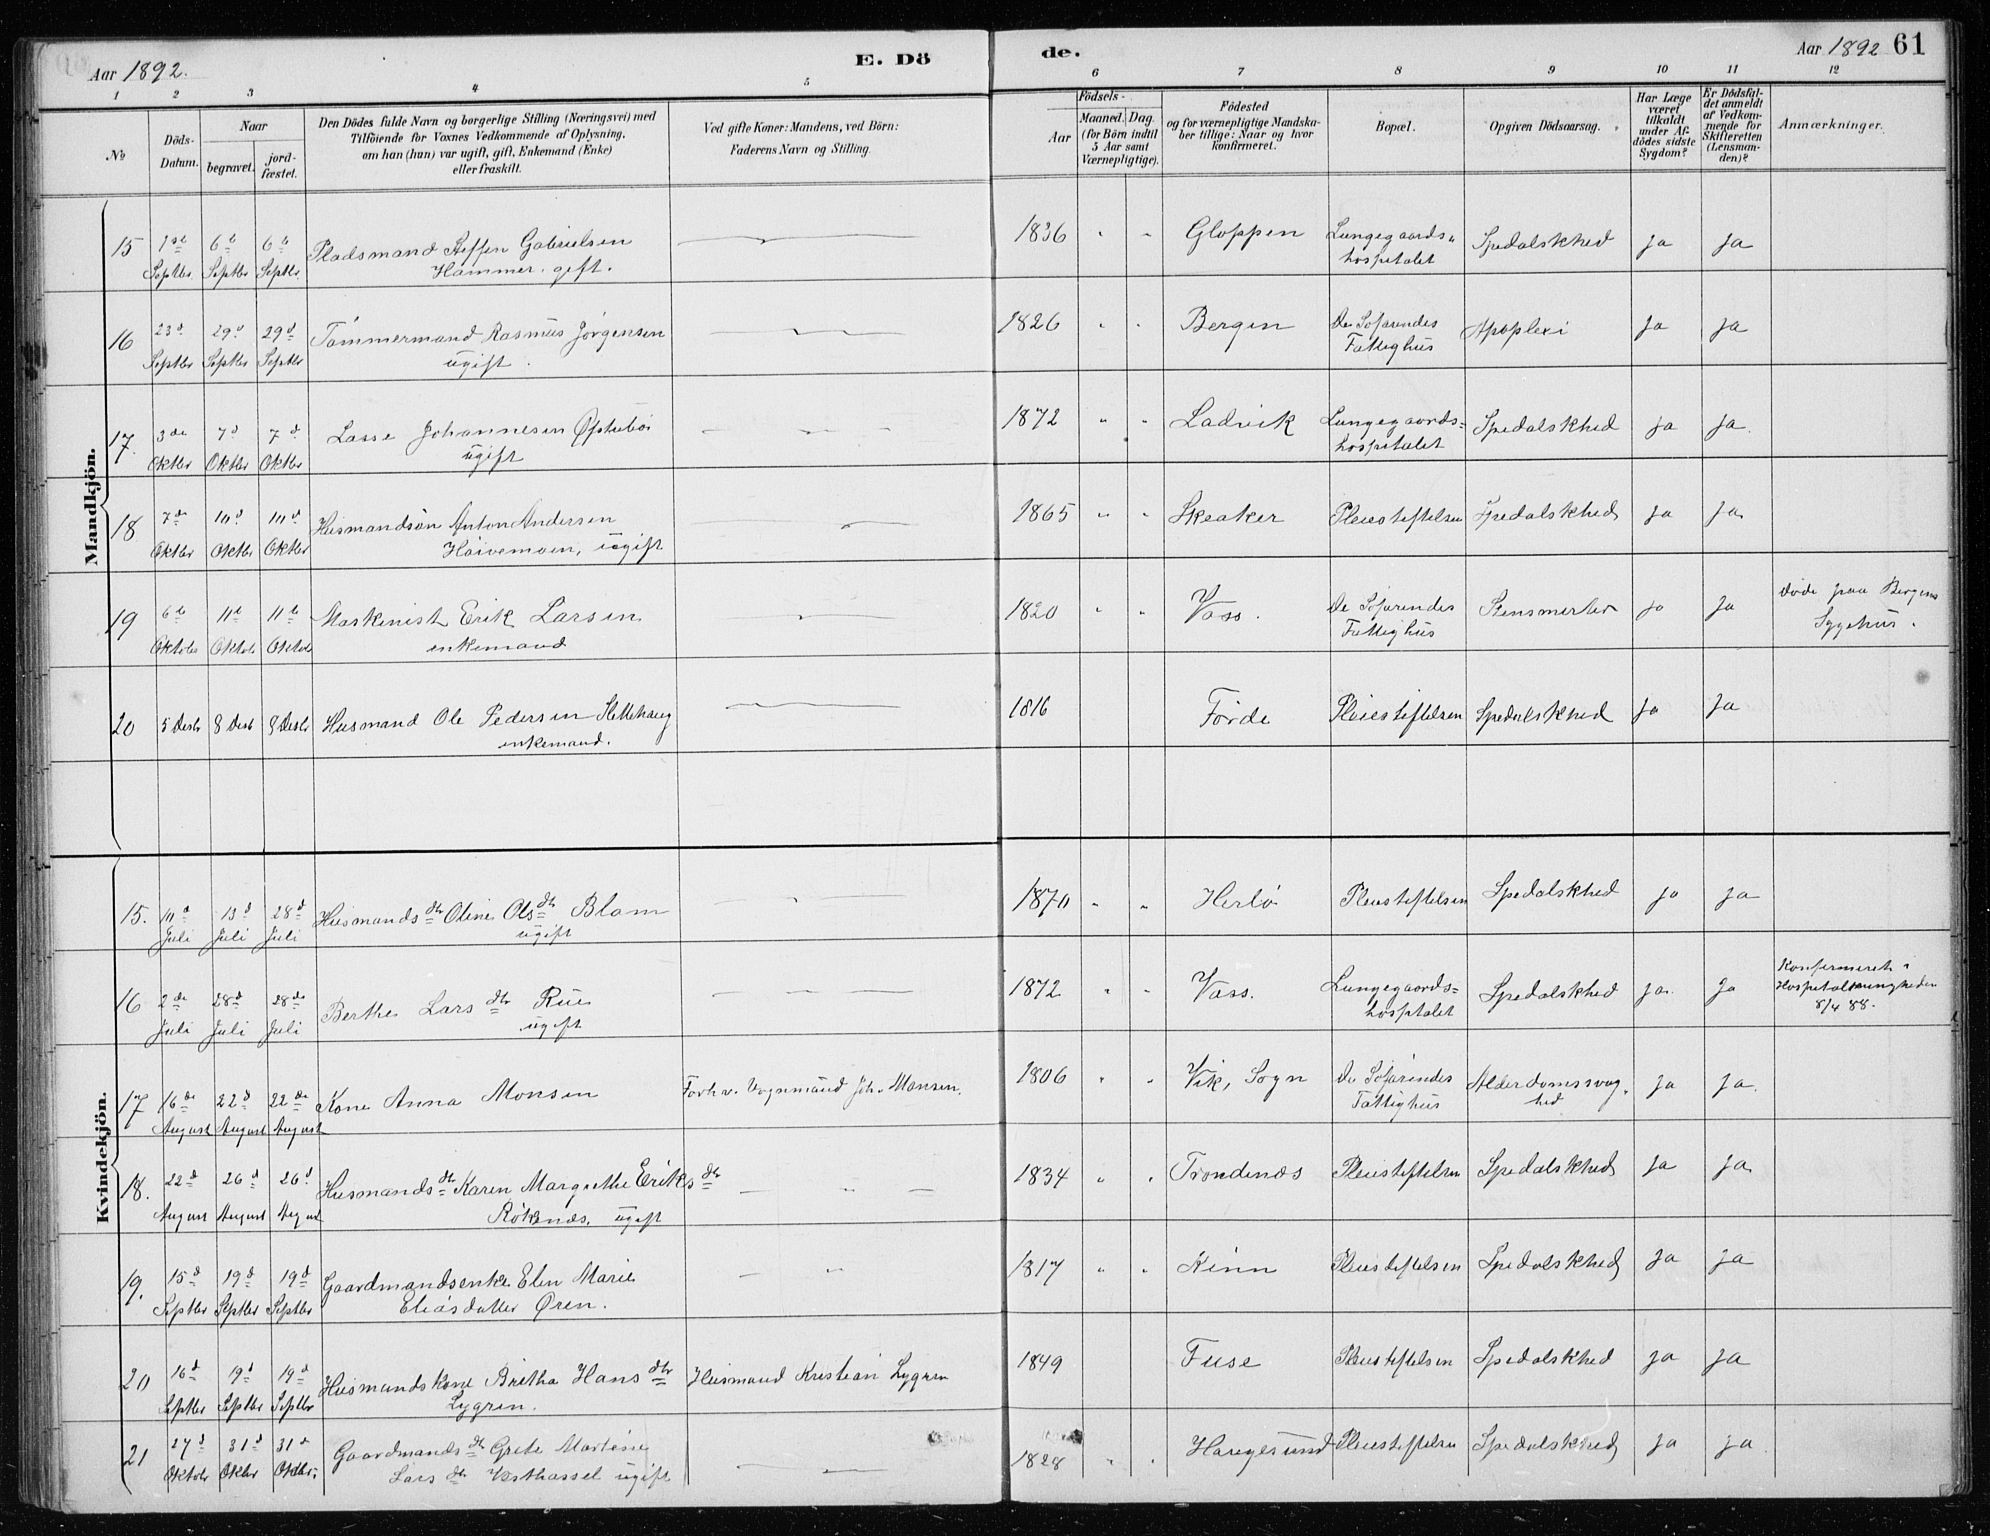 Aar 1892.
E. Dö
de.
Aar 1892
61
1 2 3 4 5 6 7 8 9 10 11 12
№
Döds-
Datum.
Naar
begravet.
jord-
fæstet.
Den Dödes fulde Navn og borgerlige Stilling (Næringsvei) med
Tilföiende for Voxnes Vedkommende af Oplysning,
om han (hun) var ugift, gift, Enkemand (Enke)
eller fraskilt.
Ved gifte Koner: Mandens, ved Börn:
Faderens Navn og Stilling.
Födsels-
Aar
Maaned. Dag.
(for Börn indtil
5 Aar samt
Værnepligtige).
Födested
og for værnepligtige Mandska-
ber tillige: Naar og hvor
konfirmeret.
Bopæl.
Opgiven Dödsaarsag.
Har Læge
været
tilkaldt
under Af-
dödes sidste
Sygdom?
Er Dödsfal-
det anmeldt
af Vedkom-
mende for
Skifteretten
(Lensman-
den)?
Anmærkninger.
Mandkjön.
15 1ste 6te 6te Pladsmand Steffen Gabrielsen 1836 " " Gloppen Lungegaards- Spedalskhed ja ja
Septbr. Septbr Septbr. Hammer. gift. hospitalet
16 23d 29d 29d Tömmermand Rasmus Jörgensen 1826 " " Bergen De Söfarendes Apoplexi ja ja
Septbr Septbr Septbr ugift. Fattighus
17. 3de 7d 7d Lasse Johannesen Östrebö 1872 " " Ladvik Lungegaards= Spedalskhed ja ja.
Oktbr Oktbr Oktbr ugift hospitalet
18 7de 10d 10d Husmandsön Anton Andersen 1865 " " Skeaker Pleiestiftelsen Spedalskhed ja ja
Oktbr Oktbr Oktbr Höivemoen, ugift
19 6te 11te 11te Maskinist Erik Larsen 1820 " " Voss. De Söfarendes Stensmerter ja ja döde paa Bergens
Oktober Oktobr Oktobr enkemand Fattighus Sygehus.
20 5 Desbr 8 Desb 8 Desbr Husmand Ole Pedersen Slettehaug 1816 Förde Pleiestiftelsen Spedalskhed ja ja
enkemand.
Kvindekjön.
15. 10d 13d 28d Husmandsdtr Oline Olsdtr Blom 1870 " " Herlö Pleiestiftelsen Spedalskhed ja ja
Juli Juli Juli ugift
16 2de 28d 28de Berthe Larsdtr Rue 1872 " " Voss. Lungegaards= Spedalskhed ja. ja Konfirmeret i
Juli Juli Juli ugift hospitalet Hospitalsmenigheden
8/4 88.
17 16de 22d 22de Kone Anna Monsen Forhv. Vognmand Joh. Monsen. 1806 " " Vik, Sogn De Söfarendes Alderdomssvag- ja ja.
August August August Fattighus hed
18. 22d 26d 26d Husmandsdtr Karen Margrethe Eriksdtr 1834 " " Trondenæs Pleiestiftelsen Spedalskhed ja ja
August August August Rökenæs, ugift
19. 15d 19d 19d Gaardmandsenke Elen Marie 1817 " " Kinn Pleiestiftelsen Spedalskhed ja ja
Septbr Septbr Septbr Eliasdatter Ören.
20 16d 19d 19d Husmandskone Britha Hansdtr Husmand Kristian Lygren 1849 Fuse Pleiestiftelsen Spedalskhed ja ja
Septbr Septbr Septbr Lygren.
21 27d 31d 31d Gaardmandsdtr Grete Martine 1828 " " Haugesund Pleiestiftelsen Spedalskhed ja ja
Oktobr Oktbr Oktbr. Larsdtr Vesthassel ugift